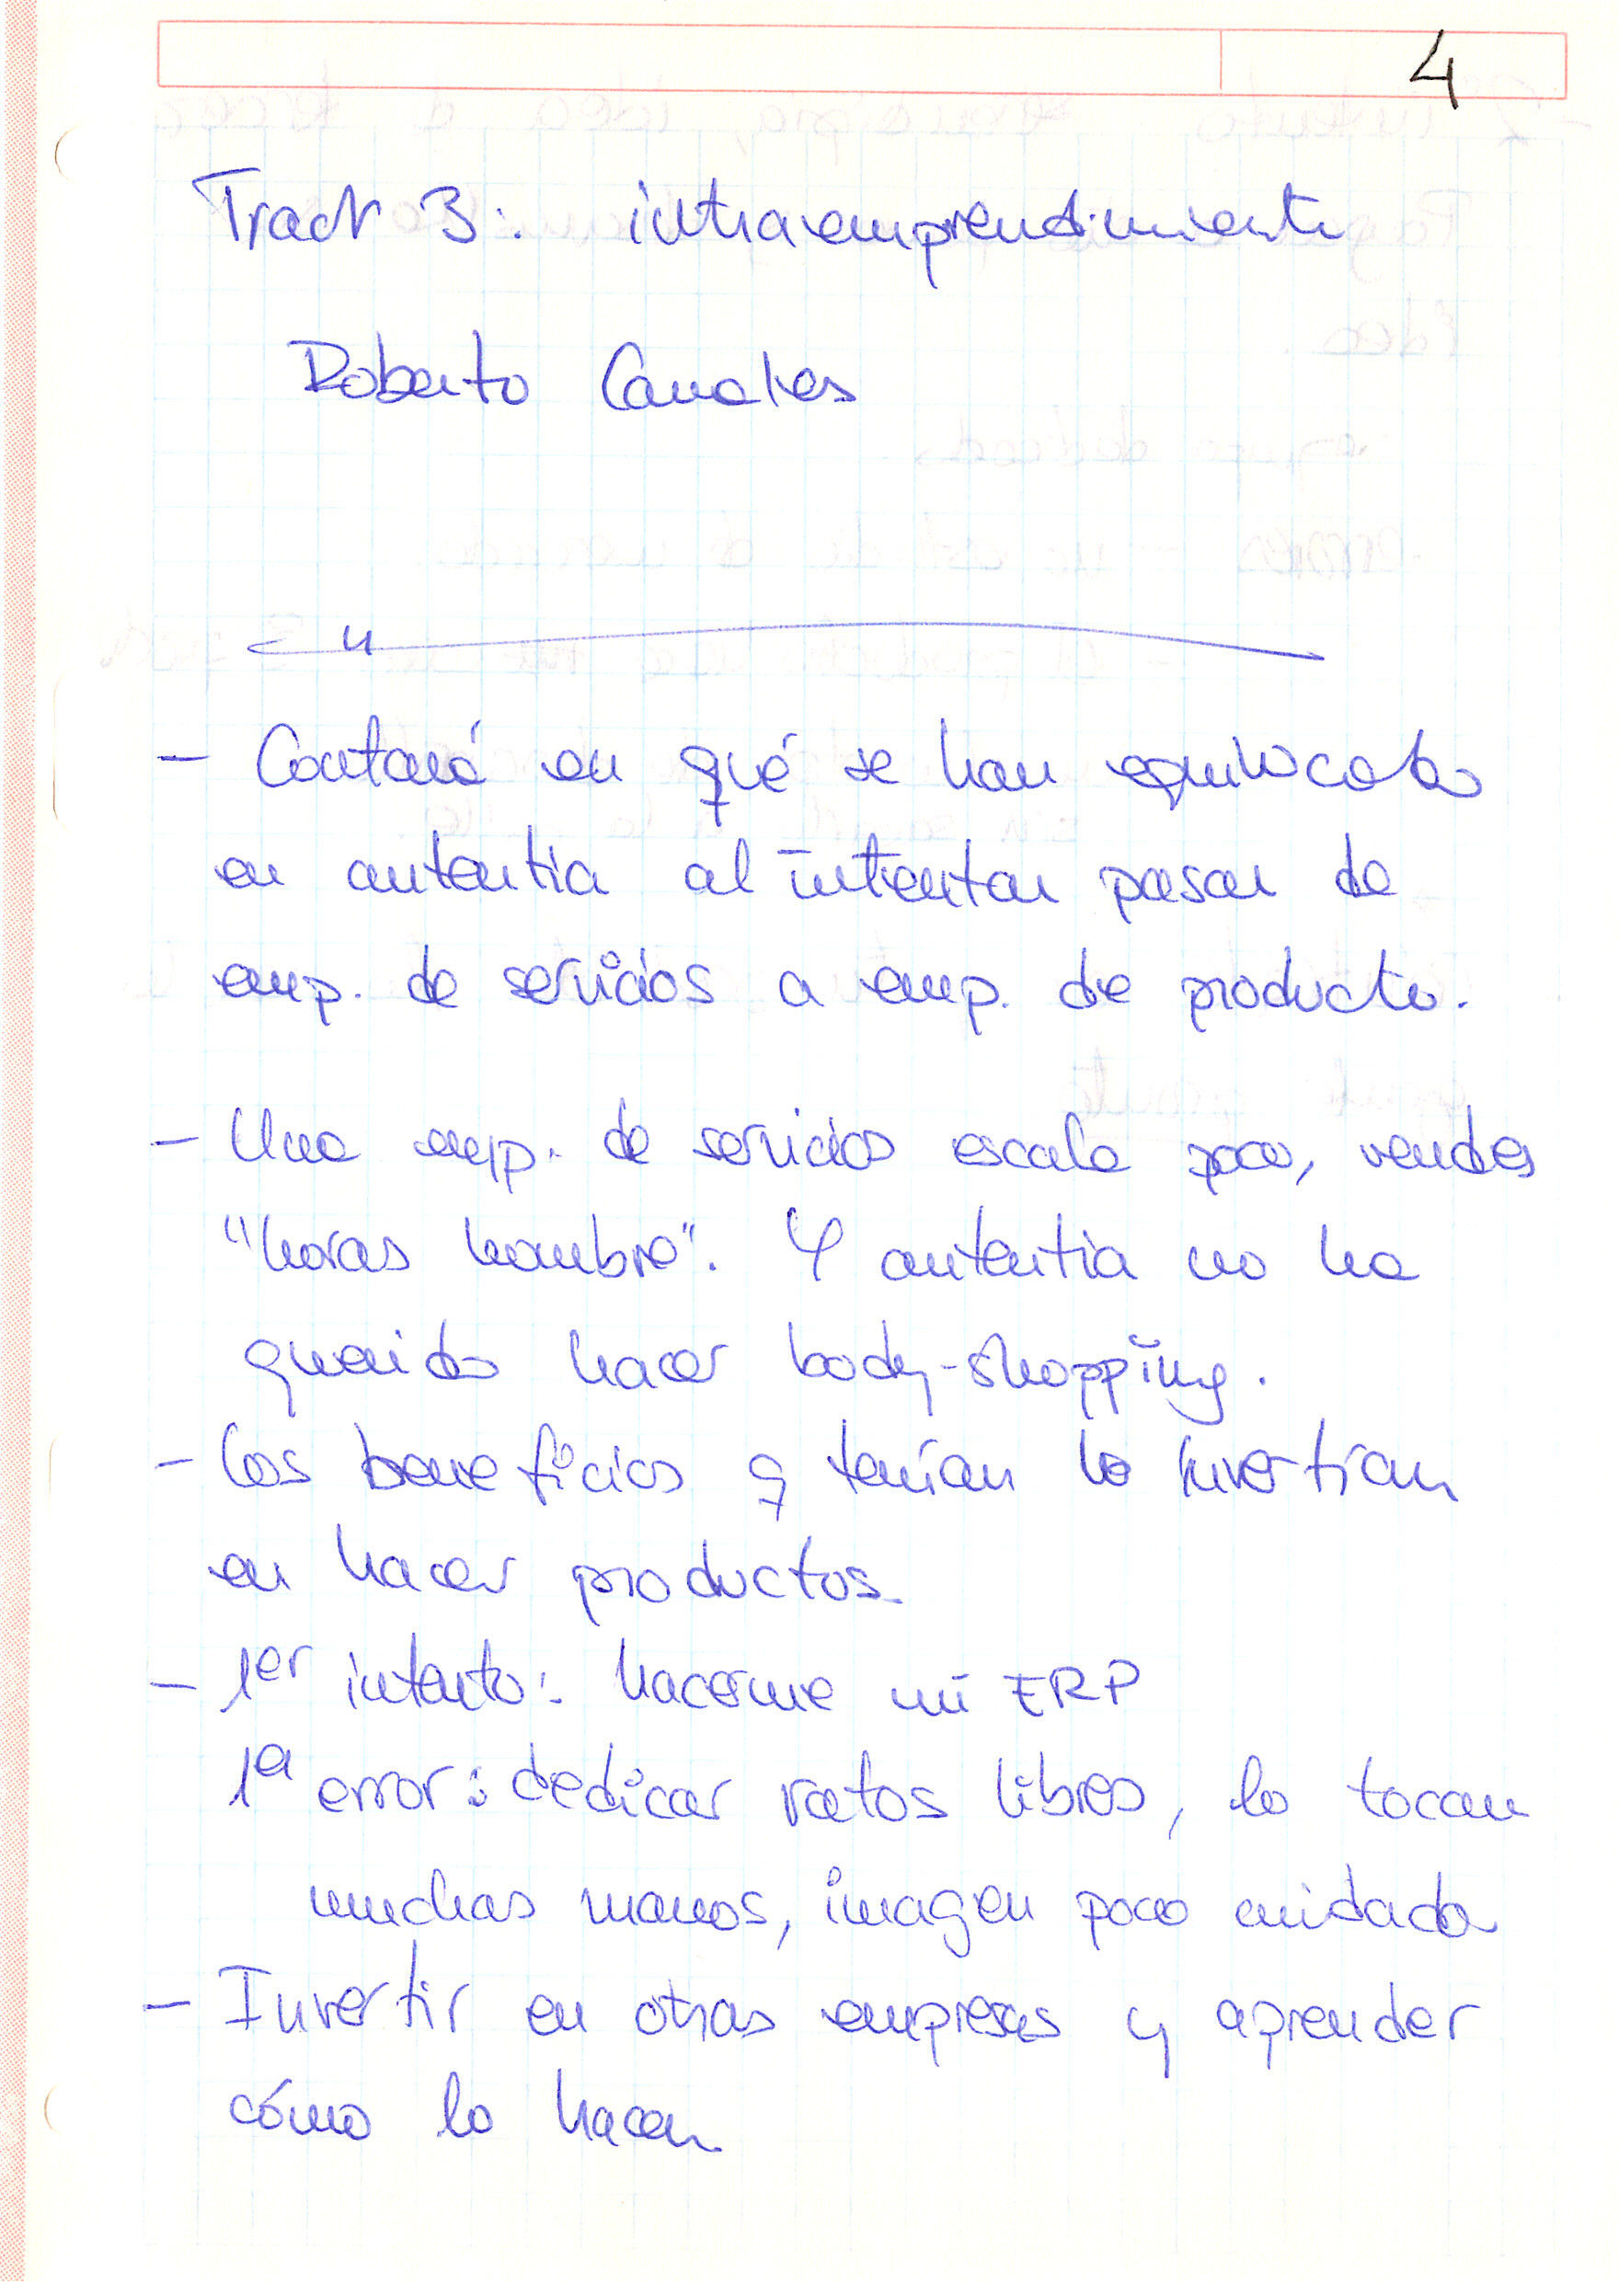 4
Tract 3: intraemprendimiento
Roberto Canales
- Contará en qué se han equivocado
en autentia al intentar pasar de
emp. de servicios a emp. de producto.
- Una emp. de servicios escala poco, vendes
"horas hombre". Y autentia no ha
querido hacer body-shopping.
- Los beneficios q tenían lo invertían
en hacer productos.
- 1er intento: hacerme mi ERP
1a error: dedicar ratos libres, lo tocan
muchas manos, imagen poco cuidada
- Invertir en otras empresas y aprender
cómo lo hacen